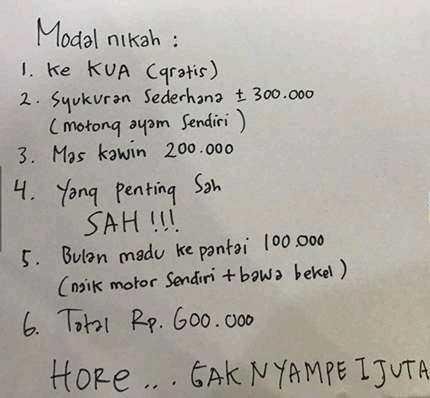 Modal nikah :
1. Ke KUA (gratis)
2. Syukuran Sederhana ± 300.000
(motong ayam Sendiri)
3. Mas kawin 200.000
4. Yang Penting Sah
SAH !!!
5. Bulan madu ke pantai 100.000
(naik motor Sendiri + bawa bekel)
6. Total Rp. 600.000
HORE ... GAK NYAMPE 1 JUTA